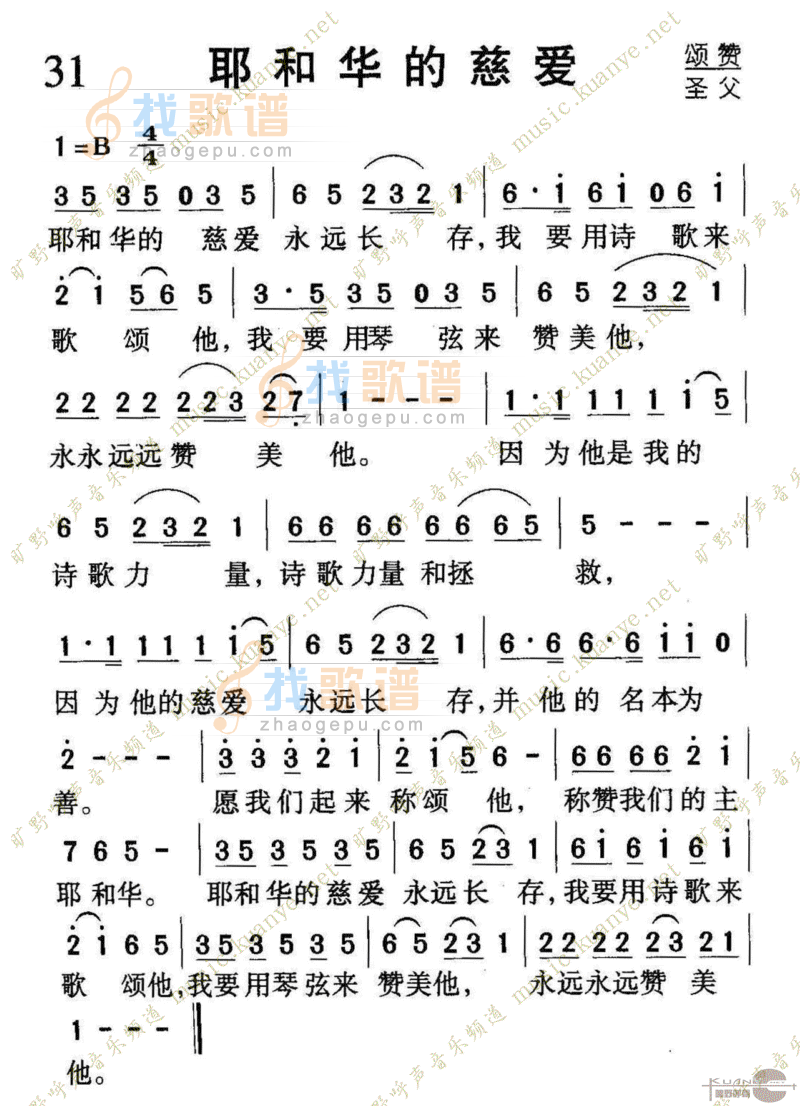 31 耶和华的慈爱 颂赞
圣父
1=B 4/4
35 35 035 | 6 5 2321 | 6·i 6i 06i |
耶和华的 慈爱 永远长 存,我 要用诗 歌来
2i 565 | 3·5 35 035 | 65 2321 |
歌 颂他,我 要用琴 弦来 赞美他,
22 22 223 27 | 1 - - - | 1·1 11 1 i5
永永远远赞 美 他。 因 为他是我的
65 2321 | 66 66 66 665 | 5 - - -
诗歌力 量,诗歌力量和拯 救,
1·1 11 1 i5 | 65 2321 | 6·6 6·6 ii0
因为他的慈爱 永远长 存,并 他的 名本为
2 - - - | 3 3 3 2 i | 2i5 6 - | 66 66 2i
善。 愿我们起来 称颂 他, 称赞我们的主
765 - | 35 35 35 | 65 231 | 6i 6i 6i
耶和华。 耶和华的慈爱 永远长 存,我要用诗歌来
2i65 | 35 35 35 | 65 231 | 22 22 23 21
歌 颂他,我要用琴弦来 赞美他, 永远永远赞 美
1 - - -
他。
找歌谱
zhaogepu.com
旷野呼声音乐频道 music.kuanye.net